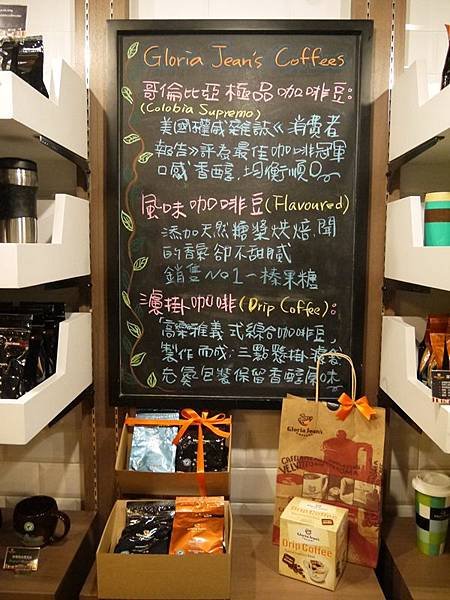 Gloria Jean's Coffees
哥倫比亞極品咖啡豆:
(Colobia Supremo)
美國權威雜誌《消費者
報告》評為最佳咖啡冠軍
口感香醇、均衡順口
風味咖啡豆(Flavoured)
添加天然糖漿烘焙、聞
的香氣卻不甜膩
銷售No1－榛果糖
濾掛咖啡(Drip Coffee):
高樂雅義式綜合咖啡豆,
製作而成;三點懸掛濾
充氮包裝保留香醇風味
Gloria Jean's
COFFEES
Drip Coffee